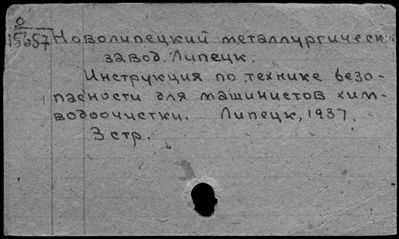 0
15657 Новолипецкий металлургическ.
завод. Липецк.
Инструкция по технике безо-
пасности для машинистов хим-
водоочистки. Липецк, 1937.
3 стр.